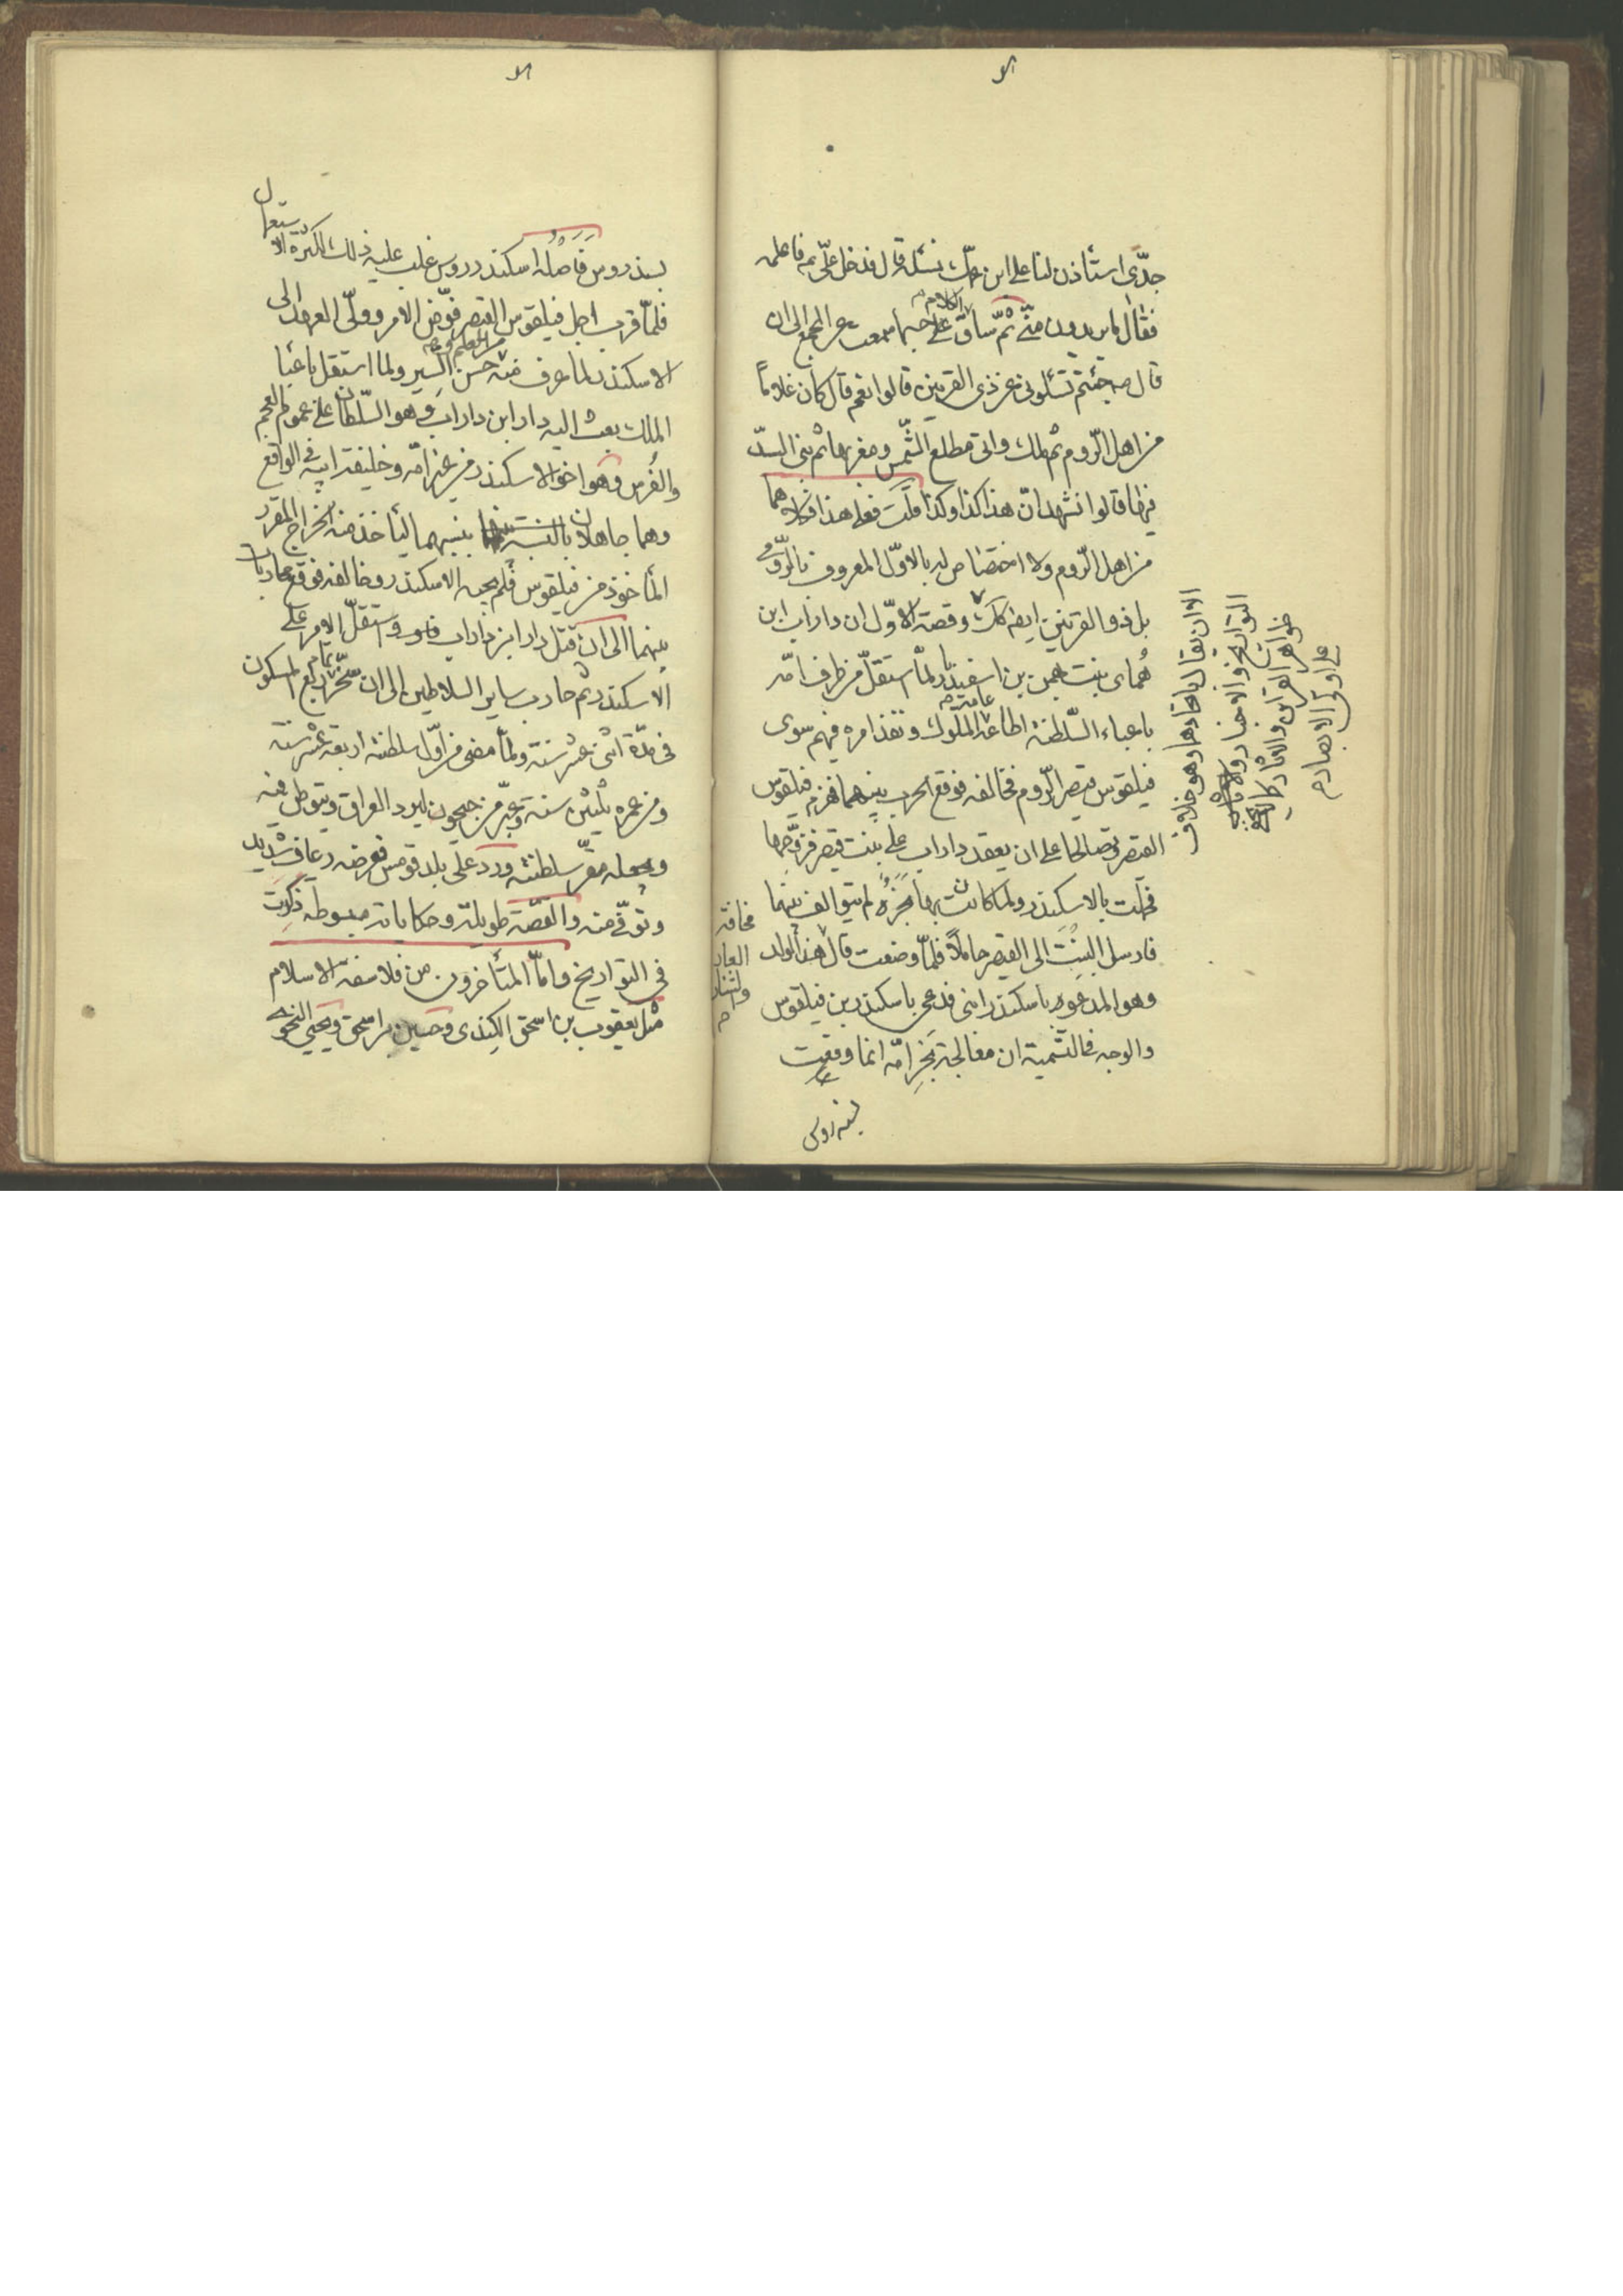 جدّى استأذن لنا على ابن عمّك نسئله قال فدخل علىّ ع فاعلمه
فقال ما يريدون منّى ثمّ ساق الكلام على حسبما سمعت عن المجمع الى ان
قال ص جئتم تسئلونى عن ذى القرنين قالوا نعم قال كان غلاماً
من اهل الرّوم ثم ملك واتى مطلع الشّمس ومغربها ثم بنى السدّ
فيها قالوا نشهد انّ هذا كذا وكذا قلت فعلى هذا فكلاهما
من اهل الرّوم ولا اختصاص له بالاوّل المعروف بالرّومى
بل ذو القرنين ايضا كك وقصة الاوّل ان داراب ابن
هُماى بنت بهمن بن اسفنديار لمّا استقلّ من طرف امّه
باعباء السّلطنة اطاعه عامة الملوك ونفذ امره فيهم سوى
فيلقوس قيصر الرّوم فخالفه فوقع الحرب بينهما فهزم فيلقوس
القيصر وتصالحا على ان يعقد داراب على بنت قيصر فزوّجها
فحملت بالاسكندر ولما كانت بها بخرة لم يتوالف بينهما
فارسل البنت الى القيصر حاملاً فلمّا وضعت قال هذا الولد
وهو المدعو باسكندر ابنى فدعى باسكندر بن فيلقوس
والوجه فى التسمية ان معالجة بخر امّه انما وقعت
مخافة
العار
والشنار
م
الا ان يقال باتحادهما وهو خلاف
التواريخ والاخبار
ظواهر القران والاثار كما لا يخفى
على اولى الابصار م
بسندروس فاصله اسكندروس غلب عليه ذلك لكثرة الاستعمال
فلمّا قرب اجل فيلقوس القيصر فوّض الامر وولّى العهد الى
الاسكندر لما عرف منه من العلم و حسن السير ولما استقل باعباء
الملك بعث اليه دارا ابن داراب وهو السّلطان على عموم العجم
والفرس وهو اخو الاسكندر من غير امّه وخليفة ابيه فى الواقع
وهما جاهلان بالنسبة بينهما ليأخذ منه الخراج المقرر
المأخوذ من فيلقوس فلم يجبه الاسكندر وخالفه فوقع محاربات
بينهما الى ان قتل دارا ابن داراب واستقلّ الامر على
الاسكندر ثم حارب ساير السلاطين الى ان سخّر تمام ربع المسكون
فى مدّة اثنى عشر سنة ولمّا مضى من اوّل سلطنته اربعة عشر سنة
ومن عمره ثلثين سنة وعبّر من جيحون ليرد العراق ويتوطن فيه
ويجعله مقرّ سلطنته ورد على بلد قومس فعرضه رعاف شديد
وتوفّى منه والقصّة طويلة وحكاياته مبسوطه ذكرت
فى التواريخ وامّا المتأخرون من فلاسفة الاسلام
مثل يعقوب بن اسحق الكندى وحسين بن اسحق ويحيى النحوى